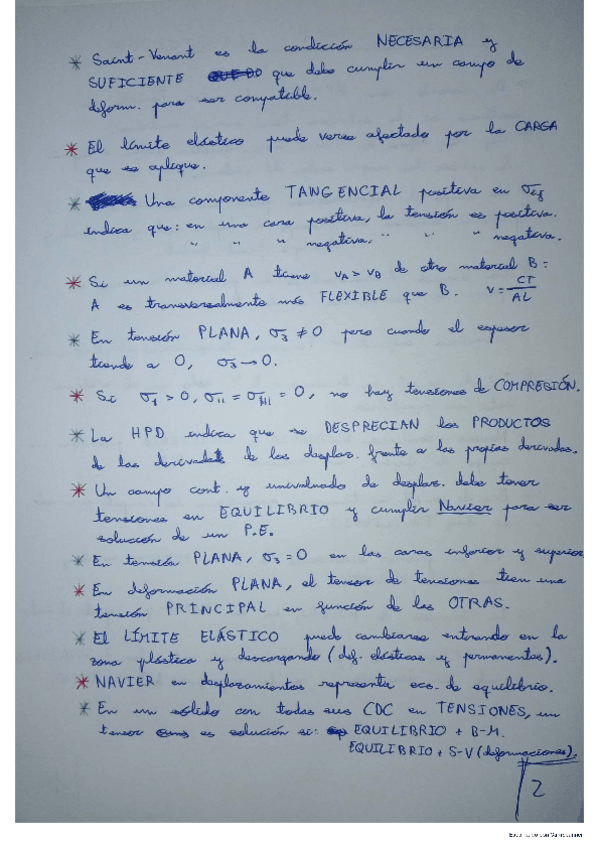 * Saint-Venant es la condición NECESARIA y
SUFICIENTE que debe cumplir un campo de
deform. para ser compatible.
* El límite elástico puede verse afectado por la CARGA
que se aplique.
* Una componente TANGENCIAL positiva en
indica que: en una cara positiva, la tensión es positiva.
" " " negativa, " " " negativa.
* Si un material A tiene νA > νB de otro material B:
A es transversalmente más FLEXIBLE que B. ν = CT/AL
* En tensión PLANA, σ3 ≠ 0 pero cuando el espesor
tiende a 0, σ3 → 0.
* Si σI > 0, σII = σIII = 0, no hay tensiones de COMPRESIÓN.
* La HPD indica que se DESPRECIAN los PRODUCTOS
de las derivadas de los desplaz. frente a las propias derivadas.
* Un campo cont. y univaluado de desplaz. debe tener
tensiones en EQUILIBRIO y cumplir Navier para ser
solución de un P.E.
* En tensión PLANA, σ3 = 0 en las caras inferior y superior
* En deformación PLANA, el tensor de tensiones tien una
tensión PRINCIPAL en función de las OTRAS.
* El LÍMITE ELÁSTICO puede cambiarse entrando en la
zona plástica y descargando (def. elásticas y permanentes).
* NAVIER en desplazamientos representa ecs. de equilibrio.
* En un sólido con todas sus CDC en TENSIONES, un
tensor es solución si: EQUILIBRIO + B-M.
EQUILIBRIO + S-V (deformaciones).
2